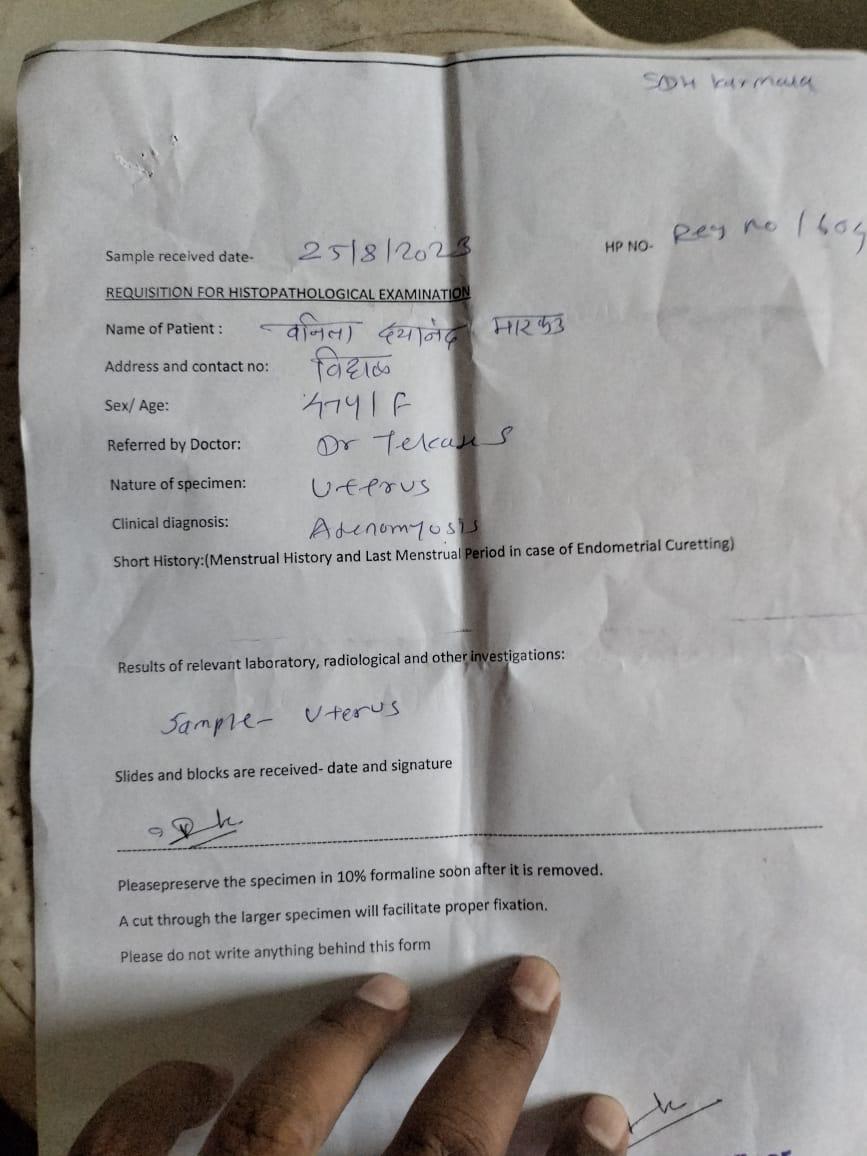 SDH Karmala
Sample received date- 25/8/2023
HP NO- Reg no 1609
REQUISITION FOR HISTOPATHOLOGICAL EXAMINATION
Name of Patient : वनिता दयानंद मारकड
Address and contact no: विहाळ
Sex/ Age: 47y/F
Referred by Doctor: Dr
Nature of specimen: Uterus
Clinical diagnosis: Adenomyosis
Short History:(Menstrual History and Last Menstrual Period in case of Endometrial Curetting)
Results of relevant laboratory, radiological and other investigations:
Sample- Uterus
Slides and blocks are received- date and signature
Pleasepreserve the specimen in 10% formaline soon after it is removed.
A cut through the larger specimen will facilitate proper fixation.
Please do not write anything behind this form